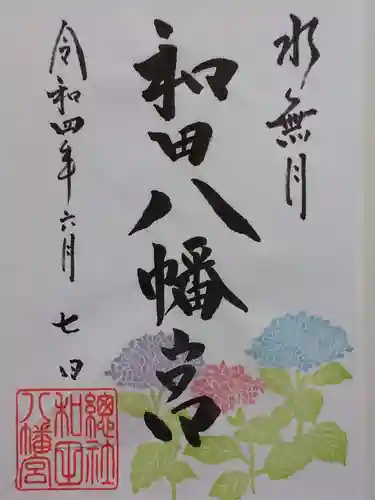 水無月
和田八幡宮
令和四年六月七日
總社
和田
八幡宮